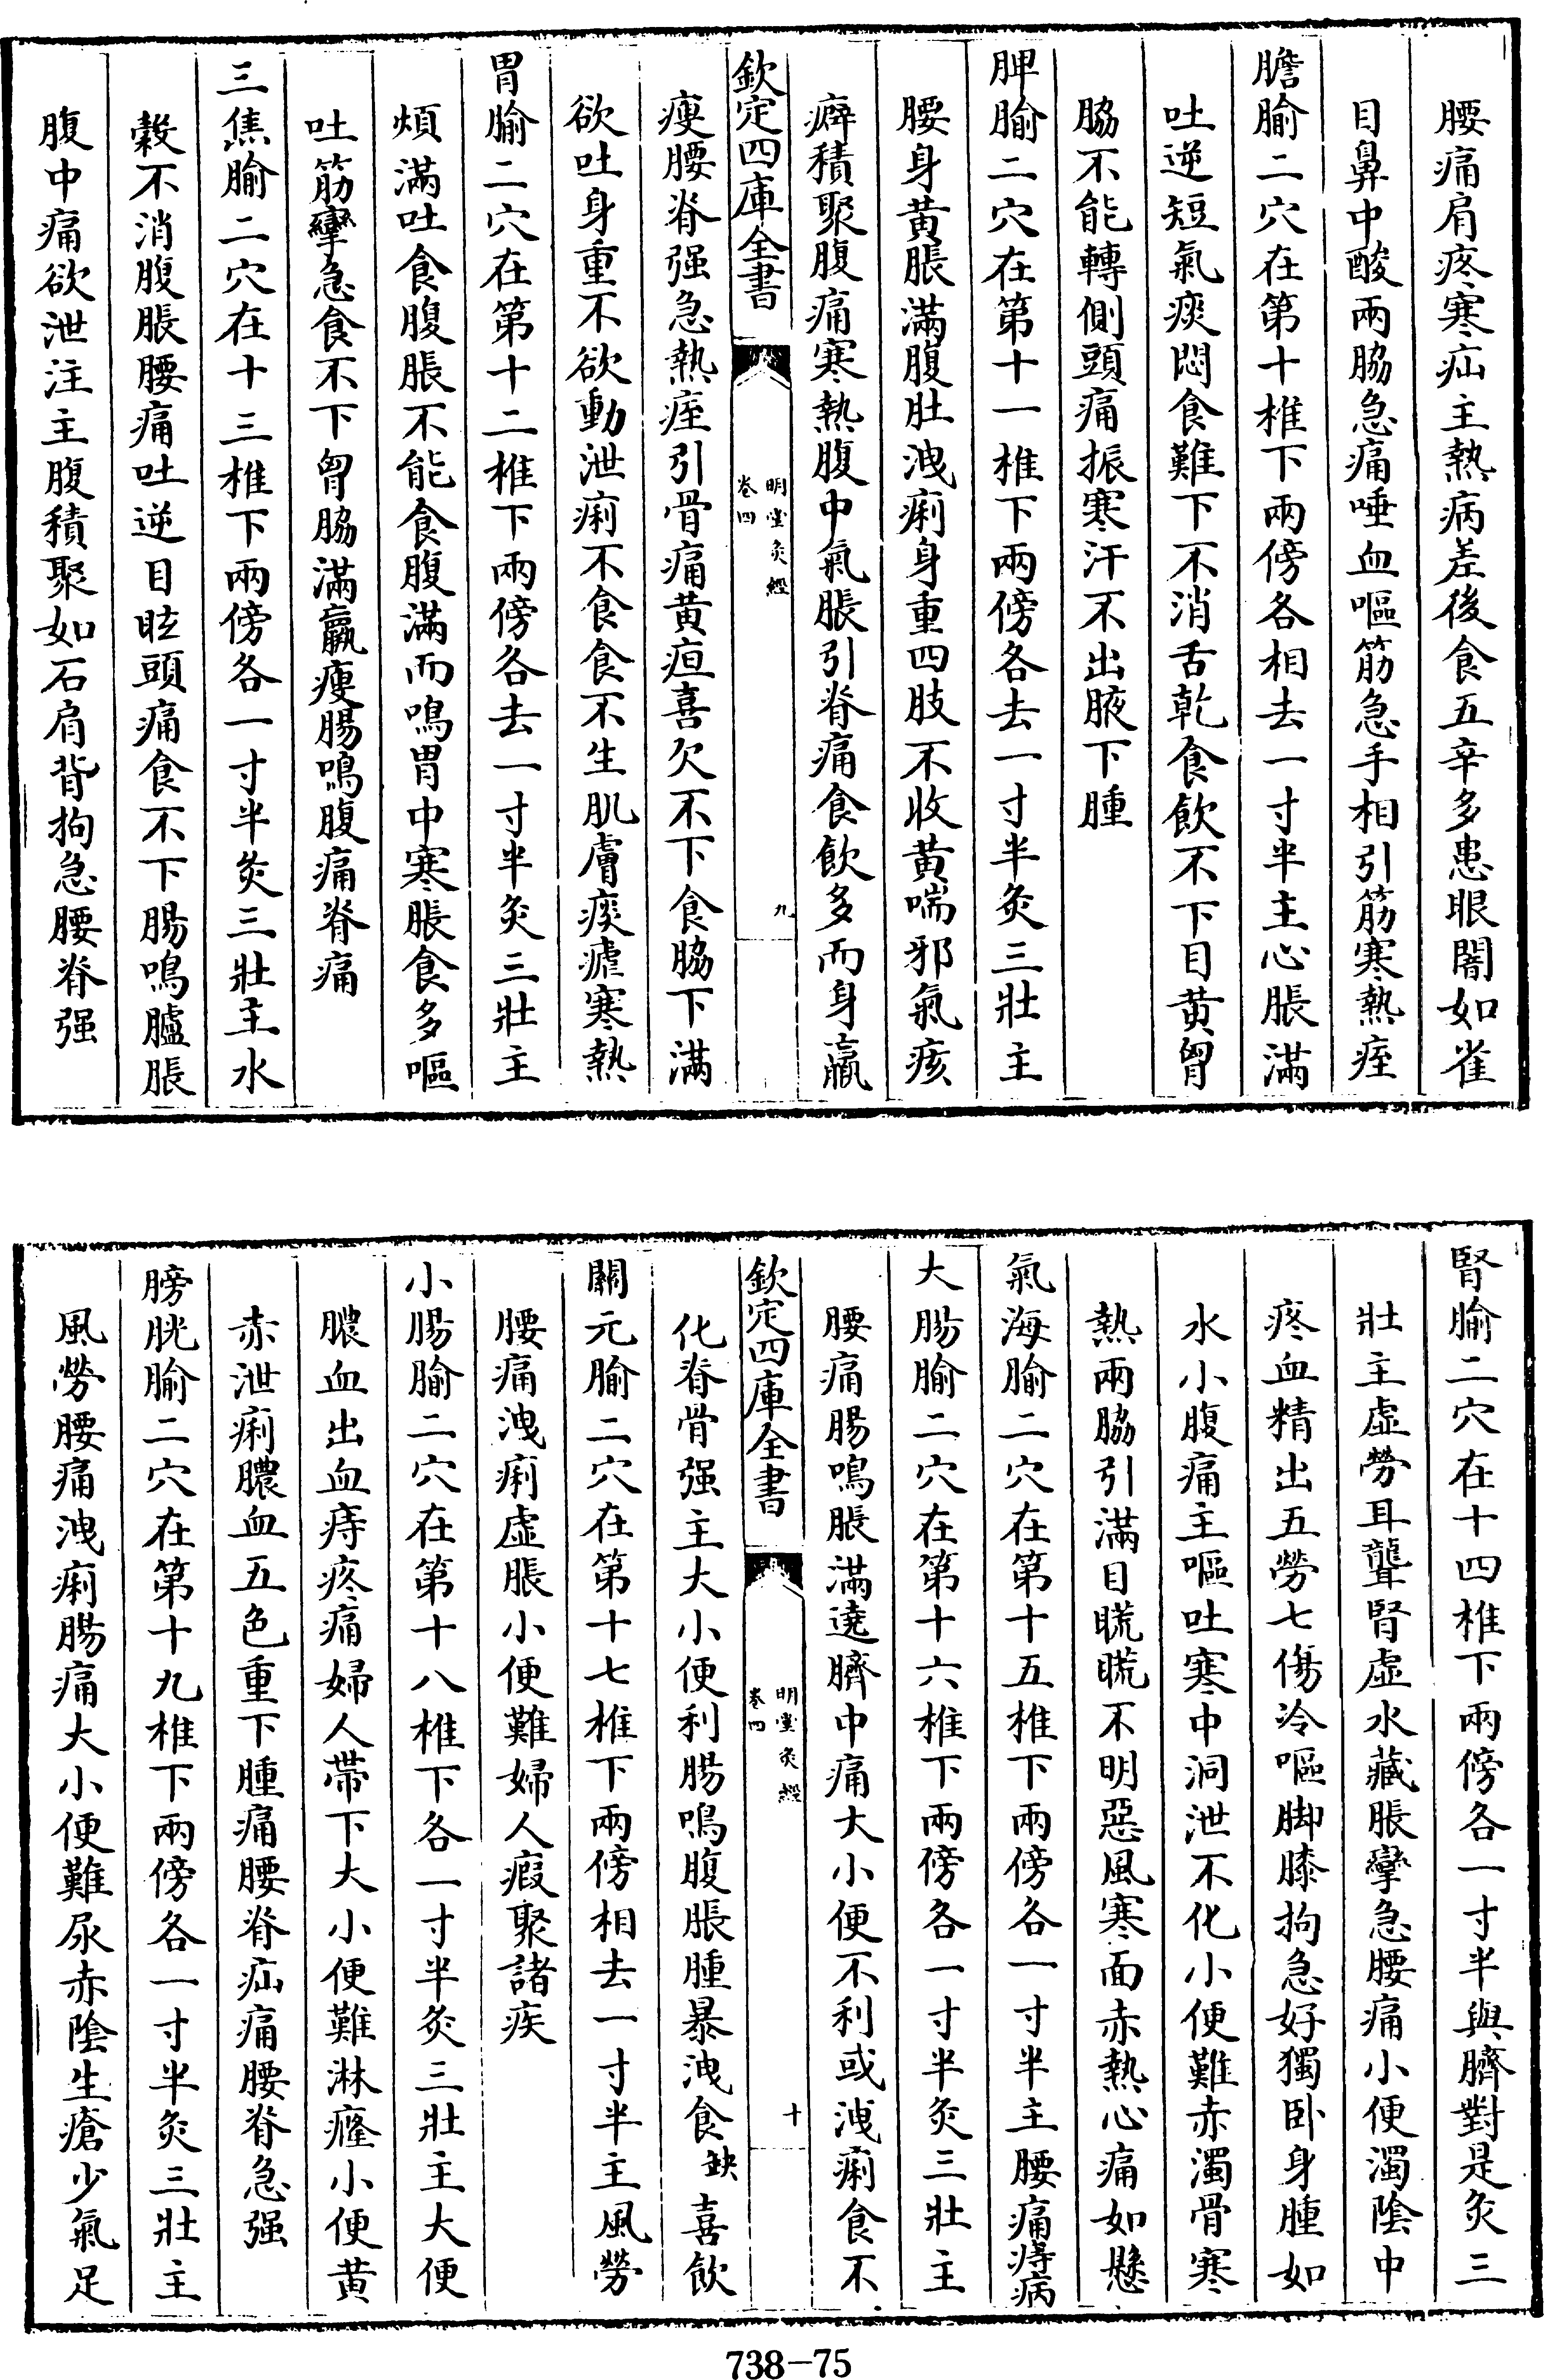 腰痛肩疼寒疝主熱病差後食五辛多患眼闇如雀
目鼻中酸兩脇急痛唾血嘔筋急手相引筋寒熱痓
膽腧二穴在第十椎下兩傍各相去一寸半主心脹滿
吐逆短氣痰悶食難下不消舌乾食飲不下目黄胷
脇不能轉側頭痛振寒汗不出腋下腫
脾腧二穴在第十一椎下兩傍各去一寸半灸三壯主
腰身黄脹滿腹肚洩痢身重四肢不收黄喘邪氣痎
癖積聚腹痛寒熱腹中氣脹引脊痛食飲多而身羸
欽定四庫全書
明堂灸經
卷四
九
瘦腰脊强急熱痓引骨痛黄疸喜欠不下食脇下滿
欲吐身重不欲動泄痢不食食不生肌膚痰瘧寒熱
胃腧二穴在第十二椎下兩傍各去一寸半灸三壯主
煩滿吐食腹脹不能食腹滿而鳴胃中寒脹食多嘔
吐筋攣急食不下胷脇滿羸瘦腸鳴腹痛脊痛
三焦腧二穴在十三椎下兩傍各一寸半灸三壯主水
穀不消腹脹腰痛吐逆目眩頭痛食不下腸鳴臚脹
腹中痛欲泄注主腹積聚如石肩背拘急腰脊强
腎腧二穴在十四椎下兩傍各一寸半與臍對是灸三
壯主虛勞耳聾腎虛水藏脹攣急腰痛小便濁陰中
疼血精出五勞七傷冷嘔脚膝拘急好獨卧身腫如
水小腹痛主嘔吐寒中洞泄不化小便難赤濁骨寒
熱兩脇引滿目䀮䀮不明惡風寒面赤熱心痛如懸
氣海腧二穴在第十五椎下兩傍各一寸半主腰痛痔病
大腸腧二穴在第十六椎下兩傍各一寸半灸三壯主
腰痛腸鳴脹滿遶臍中痛大小便不利或洩痢食不
欽定四庫全書
明堂灸經
卷四
十
化脊骨强主大小便利腸鳴腹脹腫暴洩食缺喜飲
關元腧二穴在第十七椎下兩傍相去一寸半主風勞
腰痛洩痢虛脹小便難婦人瘕聚諸疾
小腸腧二穴在第十八椎下各一寸半灸三壯主大便
膿血出血痔疼痛婦人帶下大小便難淋癃小便黄
赤泄痢膿血五色重下腫痛腰脊疝痛腰脊急强
膀胱腧二穴在第十九椎下兩傍各一寸半灸三壯主
風勞腰痛洩痢腸痛大小便難尿赤陰生瘡少氣足
738-75